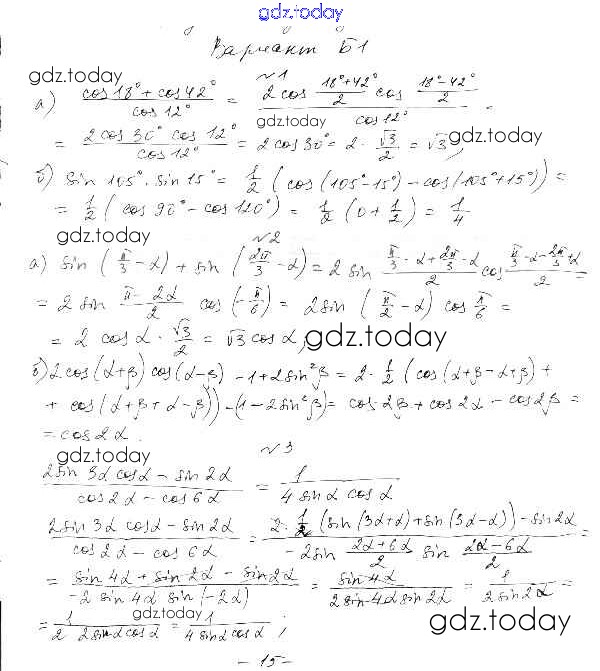 gdz.today
Вариант Б1
gdz.today
№1
а) (cos18° + cos42°)/cos12° = (2cos (18°+42°)/2 cos (18°-42°)/2)/cos12° =
gdz.today
= (2cos30° cos12°)/cos12° = 2cos30° = 2·√3/2 = √3;
gdz.today
б) sin105°·sin15° = 1/2 (cos(105°-15°) - cos(105°+15°)) =
= 1/2 (cos90° - cos120°) = 1/2 (0 + 1/2) = 1/4
gdz.today
№2
а) sin(π/3 - α) + sin(2π/3 - α) = 2 sin (π/3 - α + 2π/3 - α)/2 cos (π/3 - α - 2π/3 + α)/2 =
= 2 sin (π - 2α)/2 cos(-π/6) = 2sin(π/2 - α) cos π/6 =
= 2 cosα · √3/2 = √3 cosα;
gdz.today
б) 2cos(α+β) cos(α-β) - 1 + 2sin²β = 2·1/2 (cos(α+β-α+β) +
+ cos(α+β+α-β)) - (1 - 2sin²β) = cos2β + cos2α - cos2β =
= cos2α.
gdz.today
№3
(2sin3α cosα - sin2α)/(cos2α - cos6α) = 1/(4sinα cosα)
(2sin3α cosα - sin2α)/(cos2α - cos6α) = (2·1/2 (sin(3α+α) + sin(3α-α)) - sin2α)/(-2sin (2α+6α)/2 sin (2α-6α)/2) =
= (sin4α + sin2α - sin2α)/(-2sin4α sin(-2α)) = sin4α/(2sin4α sin2α) = 1/(2sin2α) =
gdz.today
= 1/(2·2sinα cosα) = 1/(4sinα cosα);
gdz.today
- 15 -